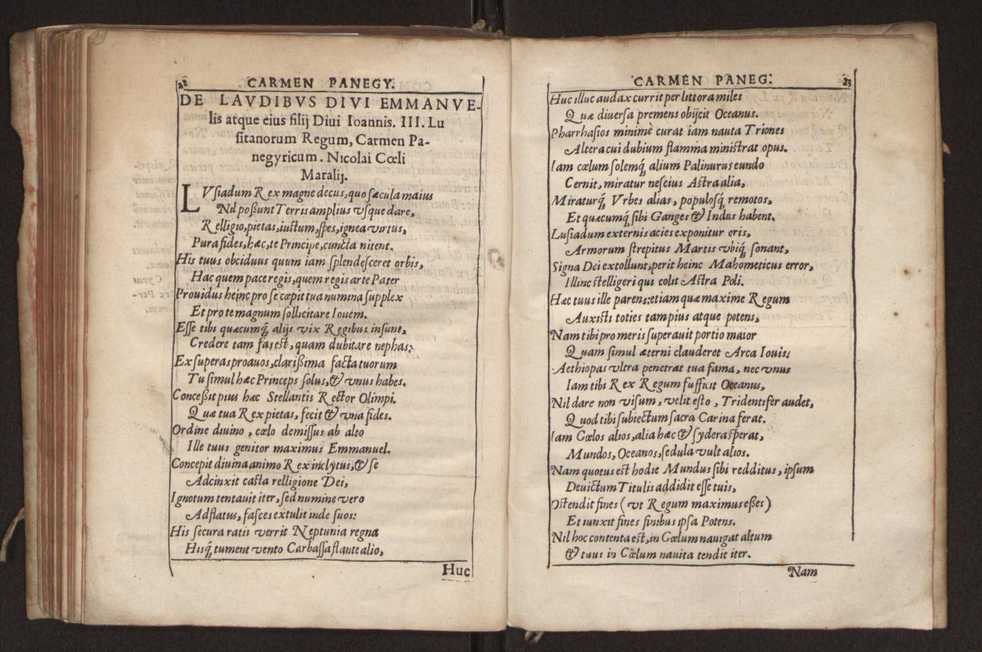 22 CARMEN PANEGY.
DE LAVDIBVS DIVI EMMANVE-
lis atque eius filij Diui Ioannis. III. Lu
sitanorum Regum, Carmen Pa-
negyricum. Nicolai Cœli
Maralij.
LVsiadum Rex magne decus, quo sæcula maius
Nil possunt Terris amplius vsque dare,
Relligio, pietas, iustum, spes, ignea virtus,
Pura fides, hæc, te Principe, cuncta nitent.
His tuus obciduus quum iam splendesceret orbis,
Hac quem pace regis, quem regis arte Pater
Prouidus heinc pro se cœpit tua numina supplex
Et pro te magnum sollicitare Iouem.
Esse tibi quæcumq́ alijs vix Regibus insunt,
Credere iam fas est, quam dubitare nephas:
Exsuperas proauos, clarißima facta tuorum
Tu simul hæc Princeps solus, & vnus habes.
Conceßit pius hæc Stellantis Rector Olimpi.
Quæ tua Rex pietas, fecit & vna fides.
Ordine diuino, cœlo demissus ab alto
Ille tuus genitor maximus Emmanuel.
Concepit diuina animo Rex inclytus, & se
Adcinxit casta relligione Dei,
Ignotum tentauit iter, sed numine vero
Adflatus, fasces extulit inde suos:
His secura ratis verrit Neptunia regna
Hisq́ tument vento Carbassa flante alio,
Huc
CARMEN PANEG. 23
Huc illuc audax currit per littora miles
Quæ diuersa premens obijcit Oceanus.
Pharrhasios minimè curat iam nauta Triones
Altera cui dubium flamma ministrat opus.
Iam cœlum solemq́ alium Palinurus eundo
Cernit, miratur nescius Astra alia,
Miraturq́ Vrbes alias, populosq́ remotos,
Et quæcumq́ sibi Ganges & Indus habent.
Lusiadum externis acies exponitur oris,
Armorum strepitus Martis vbiq́ sonant,
Signa Dei extollunt, perit heinc Mahometicus error,
Illinc stelligeri qui colit Astra Poli.
Hæc tuus ille parens: etiam quæ maxime Regum
Auxisti toties tam pius atque potens,
Nam tibi pro meris superauit portio maior
Quam simul æterni clauderet Arca Iouis:
Aethiopas vltra penetrat tua fama, nec vnus
Iam tibi Rex Regum sufficit Oceanus,
Nil dare non visum, velit esto, Tridentifer audet,
Quod tibi subiectum sacra Carina ferat.
Iam Cœlos alios, alia hæc & sydera sperat,
Mundos, Oceanos, sedula vult alios.
Nam quotus est hodie Mundus sibi redditus, ipsum
Deuictum Titulis addidit esse tuis,
Ostendit fines (vt Regum maximus esses)
Et iunxit fines finibus ipsa Potens.
Nil hoc contenta est, in Cœlum nauigat altum
& tuus in Cœlum nauita tendit iter.
Nam